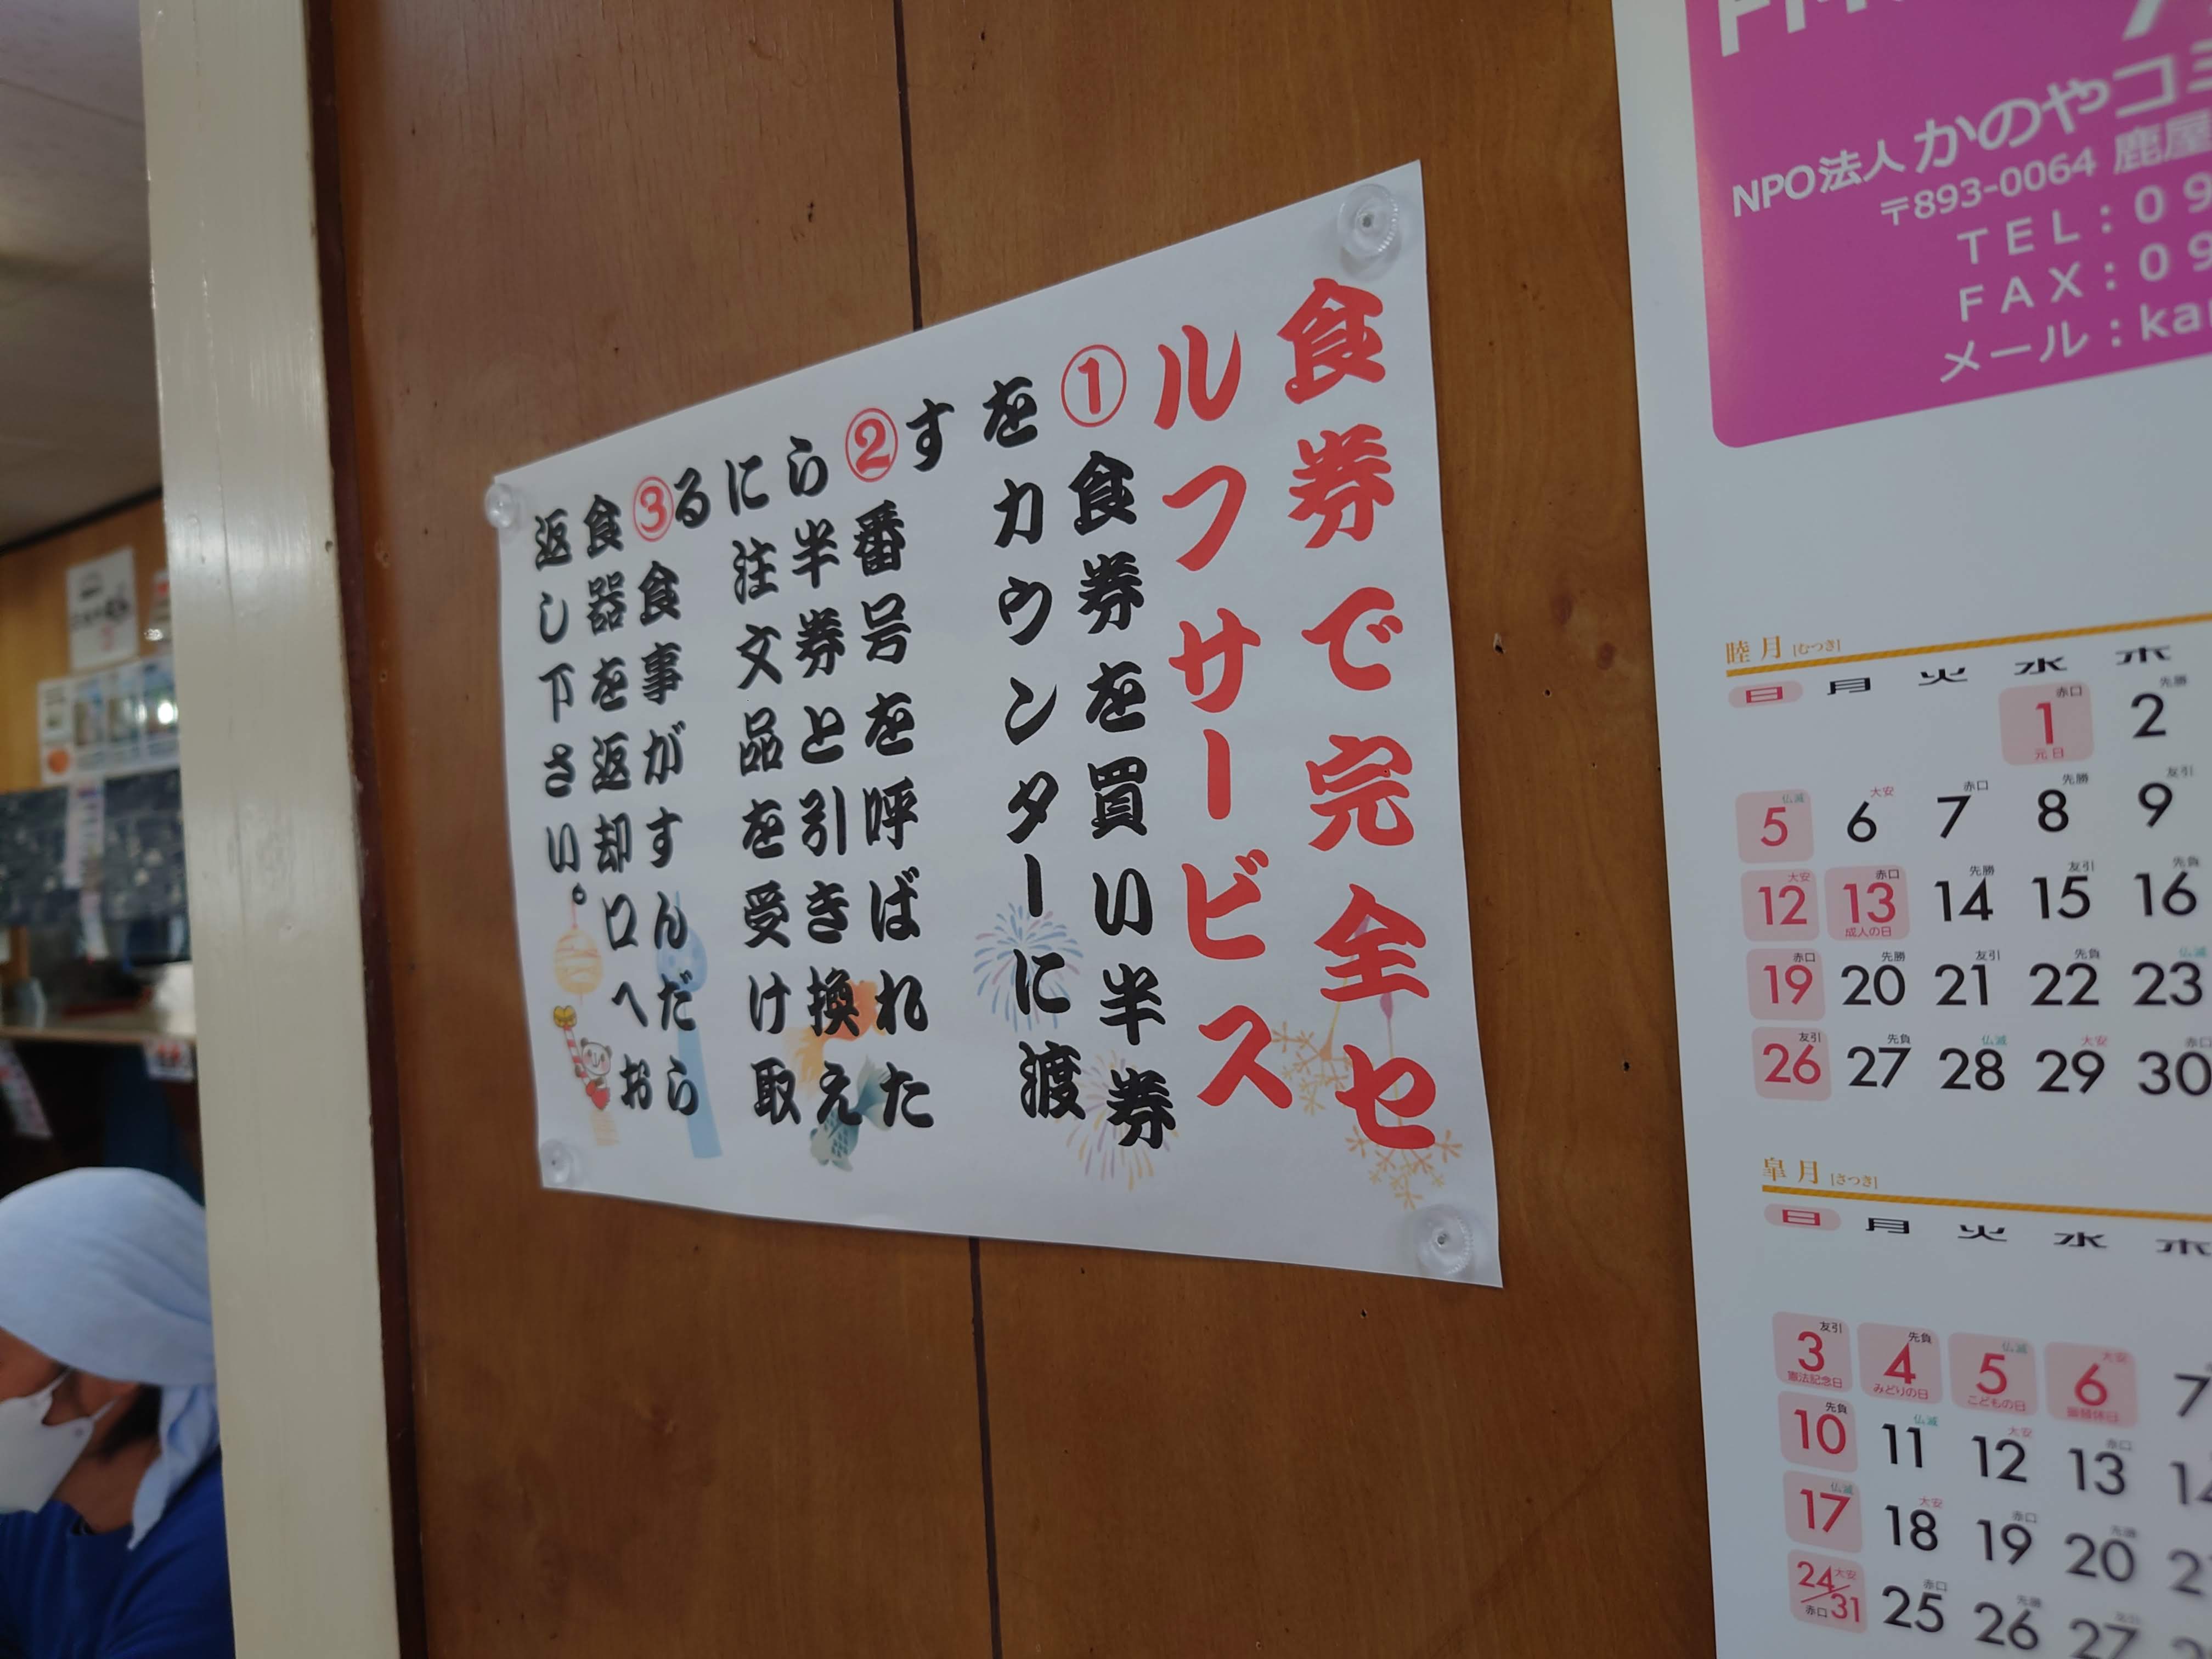 食券で完全セ
ルフサービス
①食券を買い半券
をカウンターに渡
す
②番号を呼ばれた
ら半券と引き換え
に注文品を受け取
る
③食事がすんだら
食器を返却口へお
返し下さい。
NPO法人かのやコミ
〒893-0064 鹿屋
TEL：09
FAX：09
メール：ka
睦月 [むつき]
日 月 火 水 木
赤口 先勝
1 2
元日
仏滅 大安 赤口 先勝 友引
5 6 7 8 9
大安 赤口 先勝 友引 先負
12 13 14 15 16
成人の日
赤口 先勝 友引 先負 仏滅
19 20 21 22 23
友引 先負 仏滅 大安 赤口
26 27 28 29 30
皐月 [さつき]
日 月 火 水 木
友引 先負 仏滅 大安
3 4 5 6 7
憲法記念日 みどりの日 こどもの日 振替休日
先負 仏滅 大安 赤口
10 11 12 13
仏滅 大安 赤口 先勝
17 18 19 20
大安 赤口 先勝
24/31 25 26 27
赤口